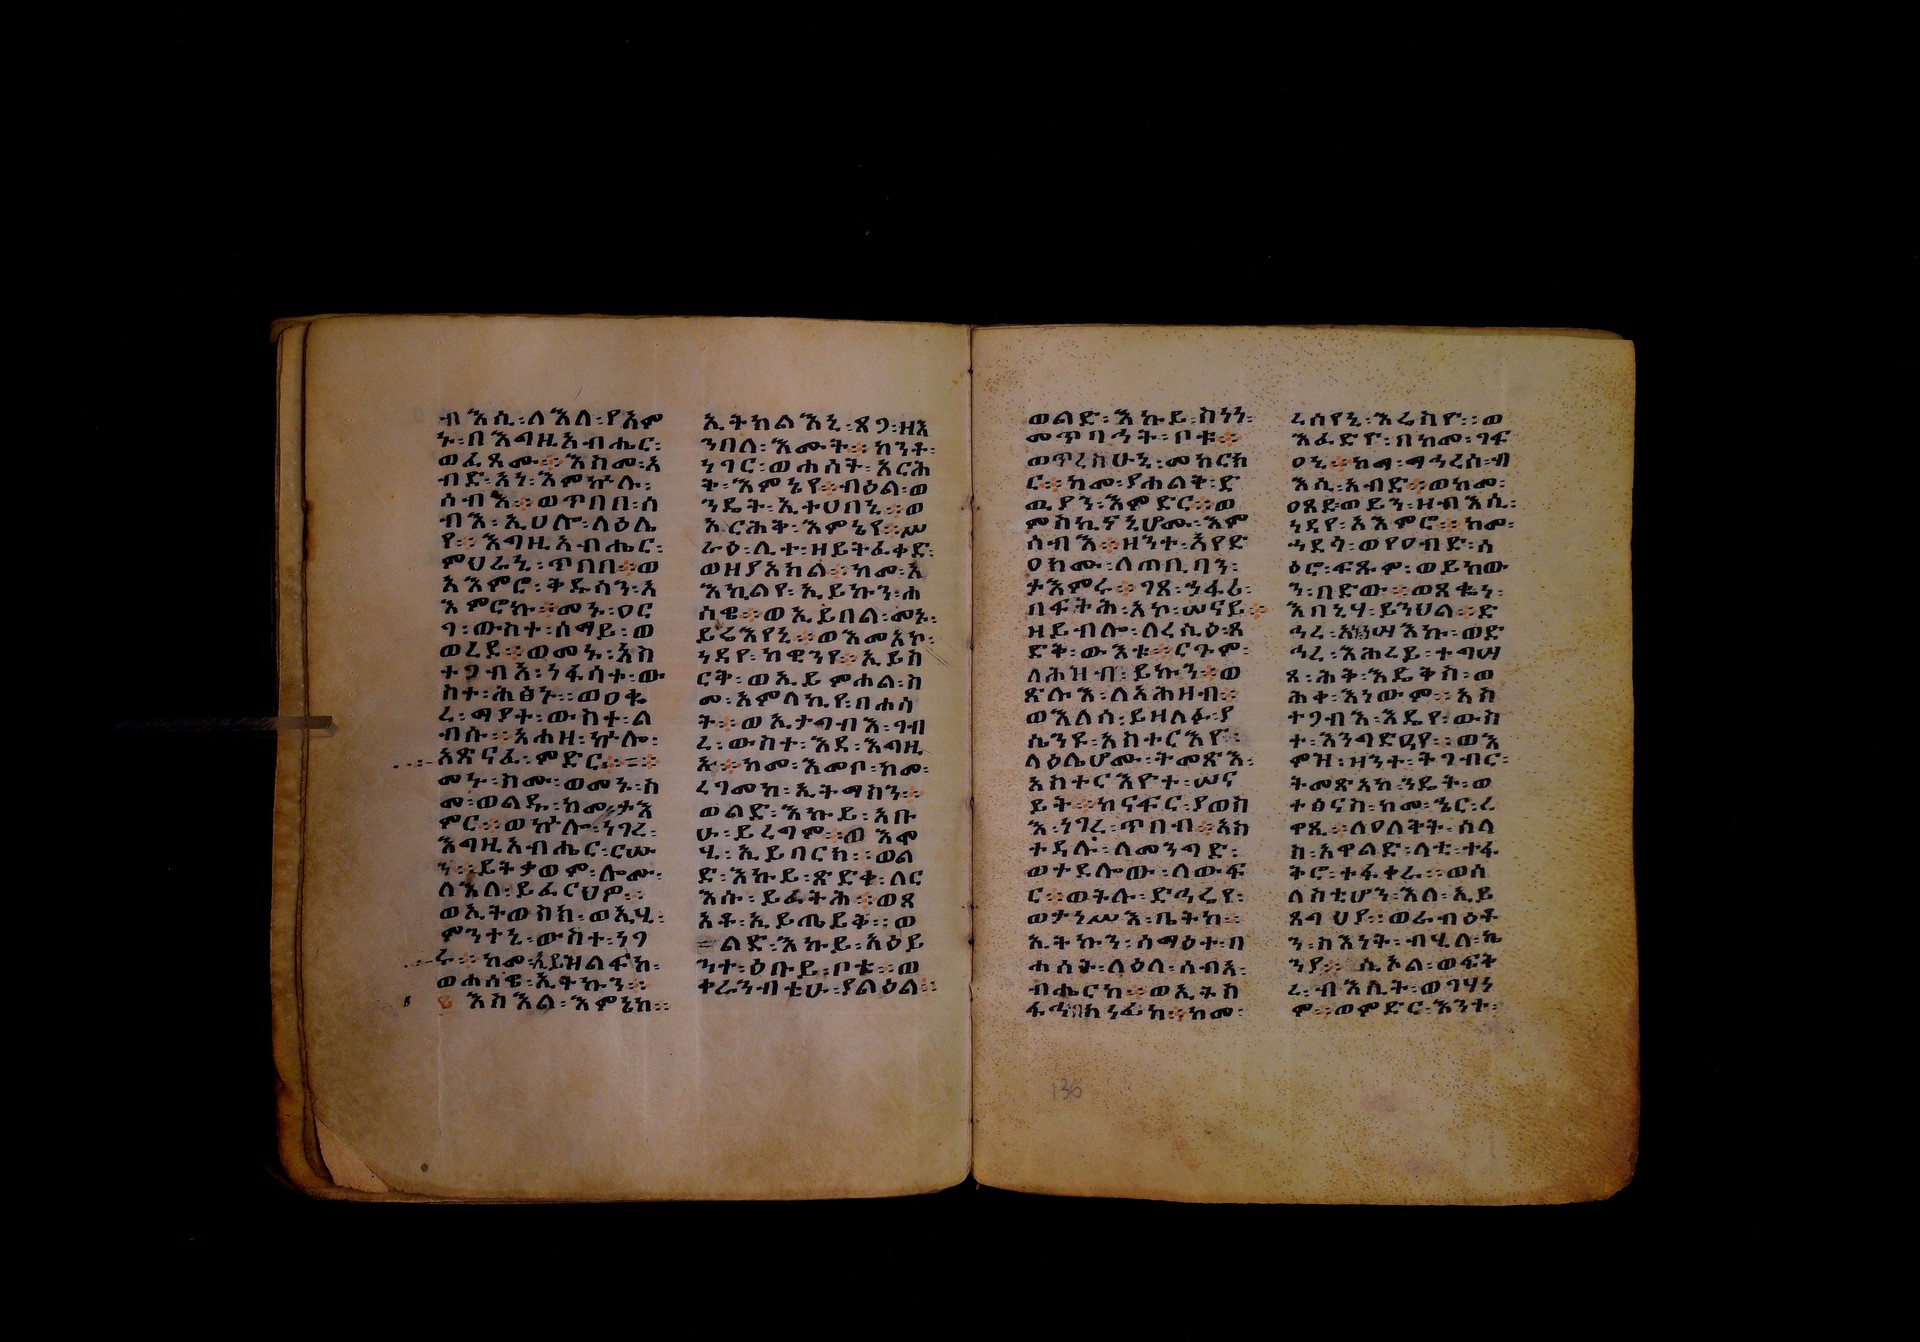 ብእሲ፡ለእለ፡የአም
ኑ፡በእግዚአብሔር፡
ወፈጸሙ።እስመ፡አ
ብድ፡አነ፡እምኵሉ፡
ሰብእ።ወጥበበ፡ሰ
ብእ፡ኢሀሎ፡ላዕሌ
የ።እግዚአብሔር፡
ምህራኒ፡ጥበበ።ወ
አእምሮ፡ቅዱሳን፡አ
እምሮኩ።መኑ፡ዐር
ገ፡ውስተ፡ሰማይ፡ወ
ወረደ።ወመኑ፡አስ
ተጋብአ፡ነፋሳተ፡ው
ስተ፡ሕፅኑ።ወዐቈ
ረ፡ማያተ፡ውስተ፡ል
ብሱ።አሐዘ፡ኵሎ፡
አጽናፈ፡ምድር።
መኑ፡ስሙ፡ወመኑ፡ስ
መ፡ወልዱ፡ከመ፡ታእ
ምር።ወኵሎ፡ነገረ፡
እግዚአብሔር፡ርሡ
ን።ይትቃወም፡ሎሙ፡
ለእለ፡ይፈርህዎ።
ወኢትወስክ፡ወኢሂ፡
ምንተኒ፡ውስተ፡ነገ
ሩ።ከመ፡ኢይዝልፍከ፡
ወሐሰዌ፡ኢትኩን።
፪እስእል፡እምኔከ።
ኢትክልእኒ፡ጸጋ፡ዘእ
ንበለ፡እሙት።ከንቶ፡
ነገር፡ወሐሰት፡አርሕ
ቅ፡እምኔየ።ብዕል፡ወ
ንዴት፡ኢተሀበኒ።ወ
አርሕቅ፡እምኔየ።ሠ
ራዕ፡ሊተ፡ዘይትፈቀድ፡
ወዘያአክል።ከመ፡አ
እኪልየ፡ኢይኩን፡ሐ
ሰዌ።ወኢይበል፡መኑ፡
ይሬእየኒ።ወእመአኮ፡
ነዳየ፡ከዊንየ።ኢይስ
ርቅ፡ወኢይምሐል፡ስ
መ፡አምላኪየ፡በሐሰ
ት።ወኢታግብእ፡ገብ
ረ፡ውስተ፡እደ፡እግዚ
ኡ።ከመ፡እመቦ፡ከመ፡
ረገመከ፡ኢትማስን።
ወልድ፡እኩይ፡አቡ
ሁ፡ይረግም።ወእሞ
ሂ፡ኢይባርክ።ወል
ድ፡እኩይ፡ጽድቀ፡ለር
እሱ፡ይፈትሕ።ወጸ
አቶ፡ኢይጤይቅ።ወ
ልድ፡እኩይ፡አዕይ
ንተ፡ዕቡይ፡ቦቱ።ወ
ተራንብቲሁ፡ያልዕል።
ወልድ፡እኩይ፡ስነነ፡
መጥባሕት፡ቦቱ።
ወጥረስሁኒ፡መከርክ
ር።ከመ፡ያሐልቅ፡ድ
ዉያን፡እምድር።ወ
ምስኪናኒሆሙ፡እም
ሰብእ።ዘንተ፡እየድ
ዐክሙ፡ለጠቢባን፡
ታእምሩ።ገጸ፡ኀፋሪ፡
በፍትሕ፡አኮ፡ሠናይ።
ዘይብሎ፡ለረሲዕ፡ጸ
ድቅ፡ውእቱ።ርጉም፡
ለሕዝብ፡ይኩን።ወ
ጽሉእ፡ለአሕዛብ።
ወእለሰ፡ይዛለፉ፡ያ
ሴንዩ፡አስተርእዮ፡
ላዕሌሆሙ፡ትመጽእ፡
አስተርእዮተ፡ሠና
ይት።ከናፍር፡ያወስ
እ፡ነገረ፡ጥበብ።አስ
ተዳሉ፡ለመንግድ፡
ወተደሎው፡ለውፍ
ር።ወትሉ፡ድኅሬየ፡
ወታነሥእ፡ቤትከ።
ኢትኩን፡ሰማዕተ፡በ
ሐሰት፡ላዕለ፡ሰብአ፡
ብሔርከ።ወኢትስ
ፋሕከነፊከ።ከመ፡
ረሰየኒ፡እሬስዮ።ወ
እፈድዮ፡በከመ፡ገፍ
ዐኒ።ከማ፡ማኅረሰ፡ብ
እሲ፡አብድ።ወከመ፡
ዐጸደ፡ወይን፡ዘብእሲ፡
ነዳየ፡አእምሮ።ከመ፡
ኀደጎ፡ወየዐብድ፡ሠ
ዕሮ፡ፍጹም፡ወይከው
ን፡በድው፡ወጸቈነ፡
እበኒሃ፡ይንህል።ድ
ኅረ፡እኔሣእኩ፡ወድ
ኅረ፡እሕረይ፡ተግሣ
ጸ፡ሕቅ፡እዴቅስ፡ወ
ሕቀ፡እነውም።አስ
ተጋብእ፡እዴየ፡ውስ
ተ፡እንግድዓየ።ወእ
ምዝ፡ዘንተ፡ትገብር፡
ትመጽአከ፡ንዴት፡ወ
ተፅናስ፡ከመ፡ኄር፡ረ
ዋጺ።ለዐለትት፡ሰላ
ስ፡አዋልድ፡ላቲ፡ተፋ
ትሮ፡ተፋቀራ።ወሰ
ለስቲሆን፡እለ፡ኢይ
ጸግህያ።ወራብዕቶ
ን፡ስእነት፡ብሂለ፡ኬ
ንያ።ሲኦል፡ወፍት
ረ፡ብእሲት፡ወገሃነ
ም።ወምድር፡እንተ፡
136